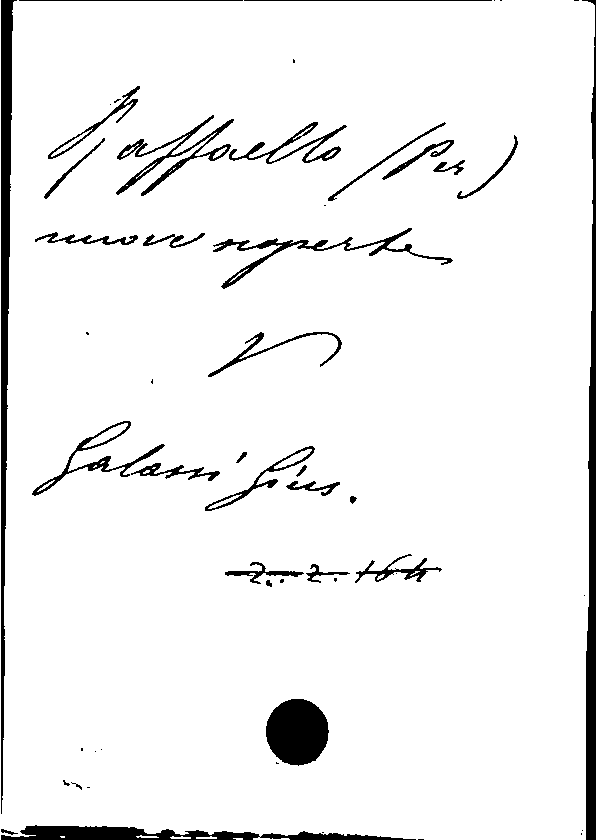 Raffaello (Per)
nuove scoperte
V
Galassi Gius.
2..2.164